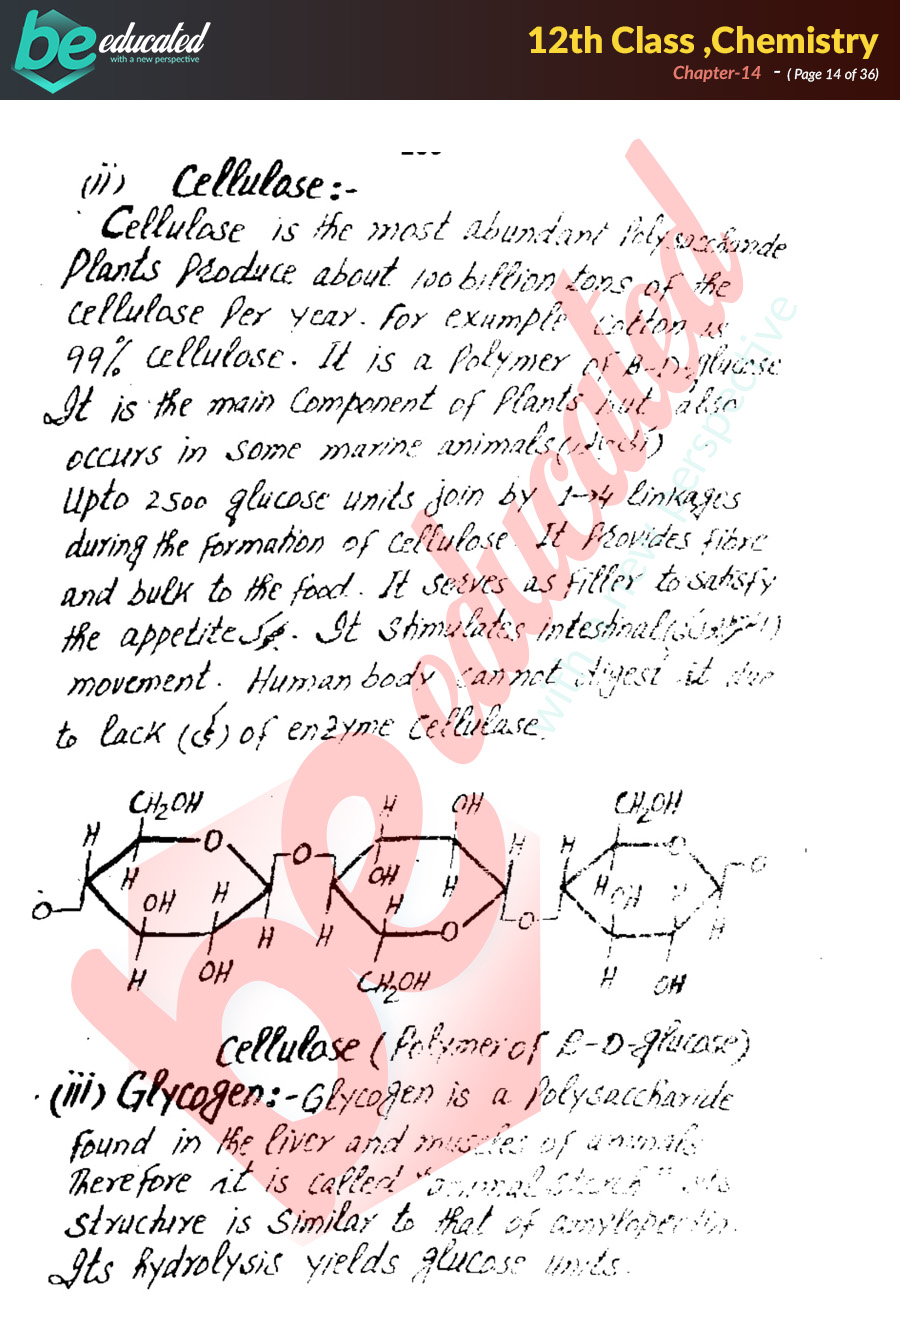 be educated
with a new perspective
12th Class ,Chemistry
Chapter-14 - ( Page 14 of 36)
(ii) Cellulose:-
Cellulose is the most abundant Polysaccharide
Plants Produce about 100 billion tons of the
cellulose Per year. For example cotton is
99% cellulose. It is a Polymer of B-D-glucose
It is the main Component of Plants but also
occurs in some marine animals
Upto 2500 glucose units join by 1→4 linkages
during the formation of cellulose. It Provides fibre
and bulk to the food. It serves as filler to satisfy
the appetite. It stimulates intestinal
movement. Human body cannot digest it due
to lack (کمی) of enzyme cellulase.
CH2OH H OH CH2OH
H O O H H O O
H OH H OH H H OH H
O H H H O O H
H OH CH2OH H OH
Cellulose (Polymer of B-D-glucose)
(iii) Glycogen:- Glycogen is a Polysaccharide
found in the liver and muscles of animals
Therefore it is called "animal starch" its
structure is similar to that of amylopectin.
Its hydrolysis yields glucose units.
be educated
with a new perspective